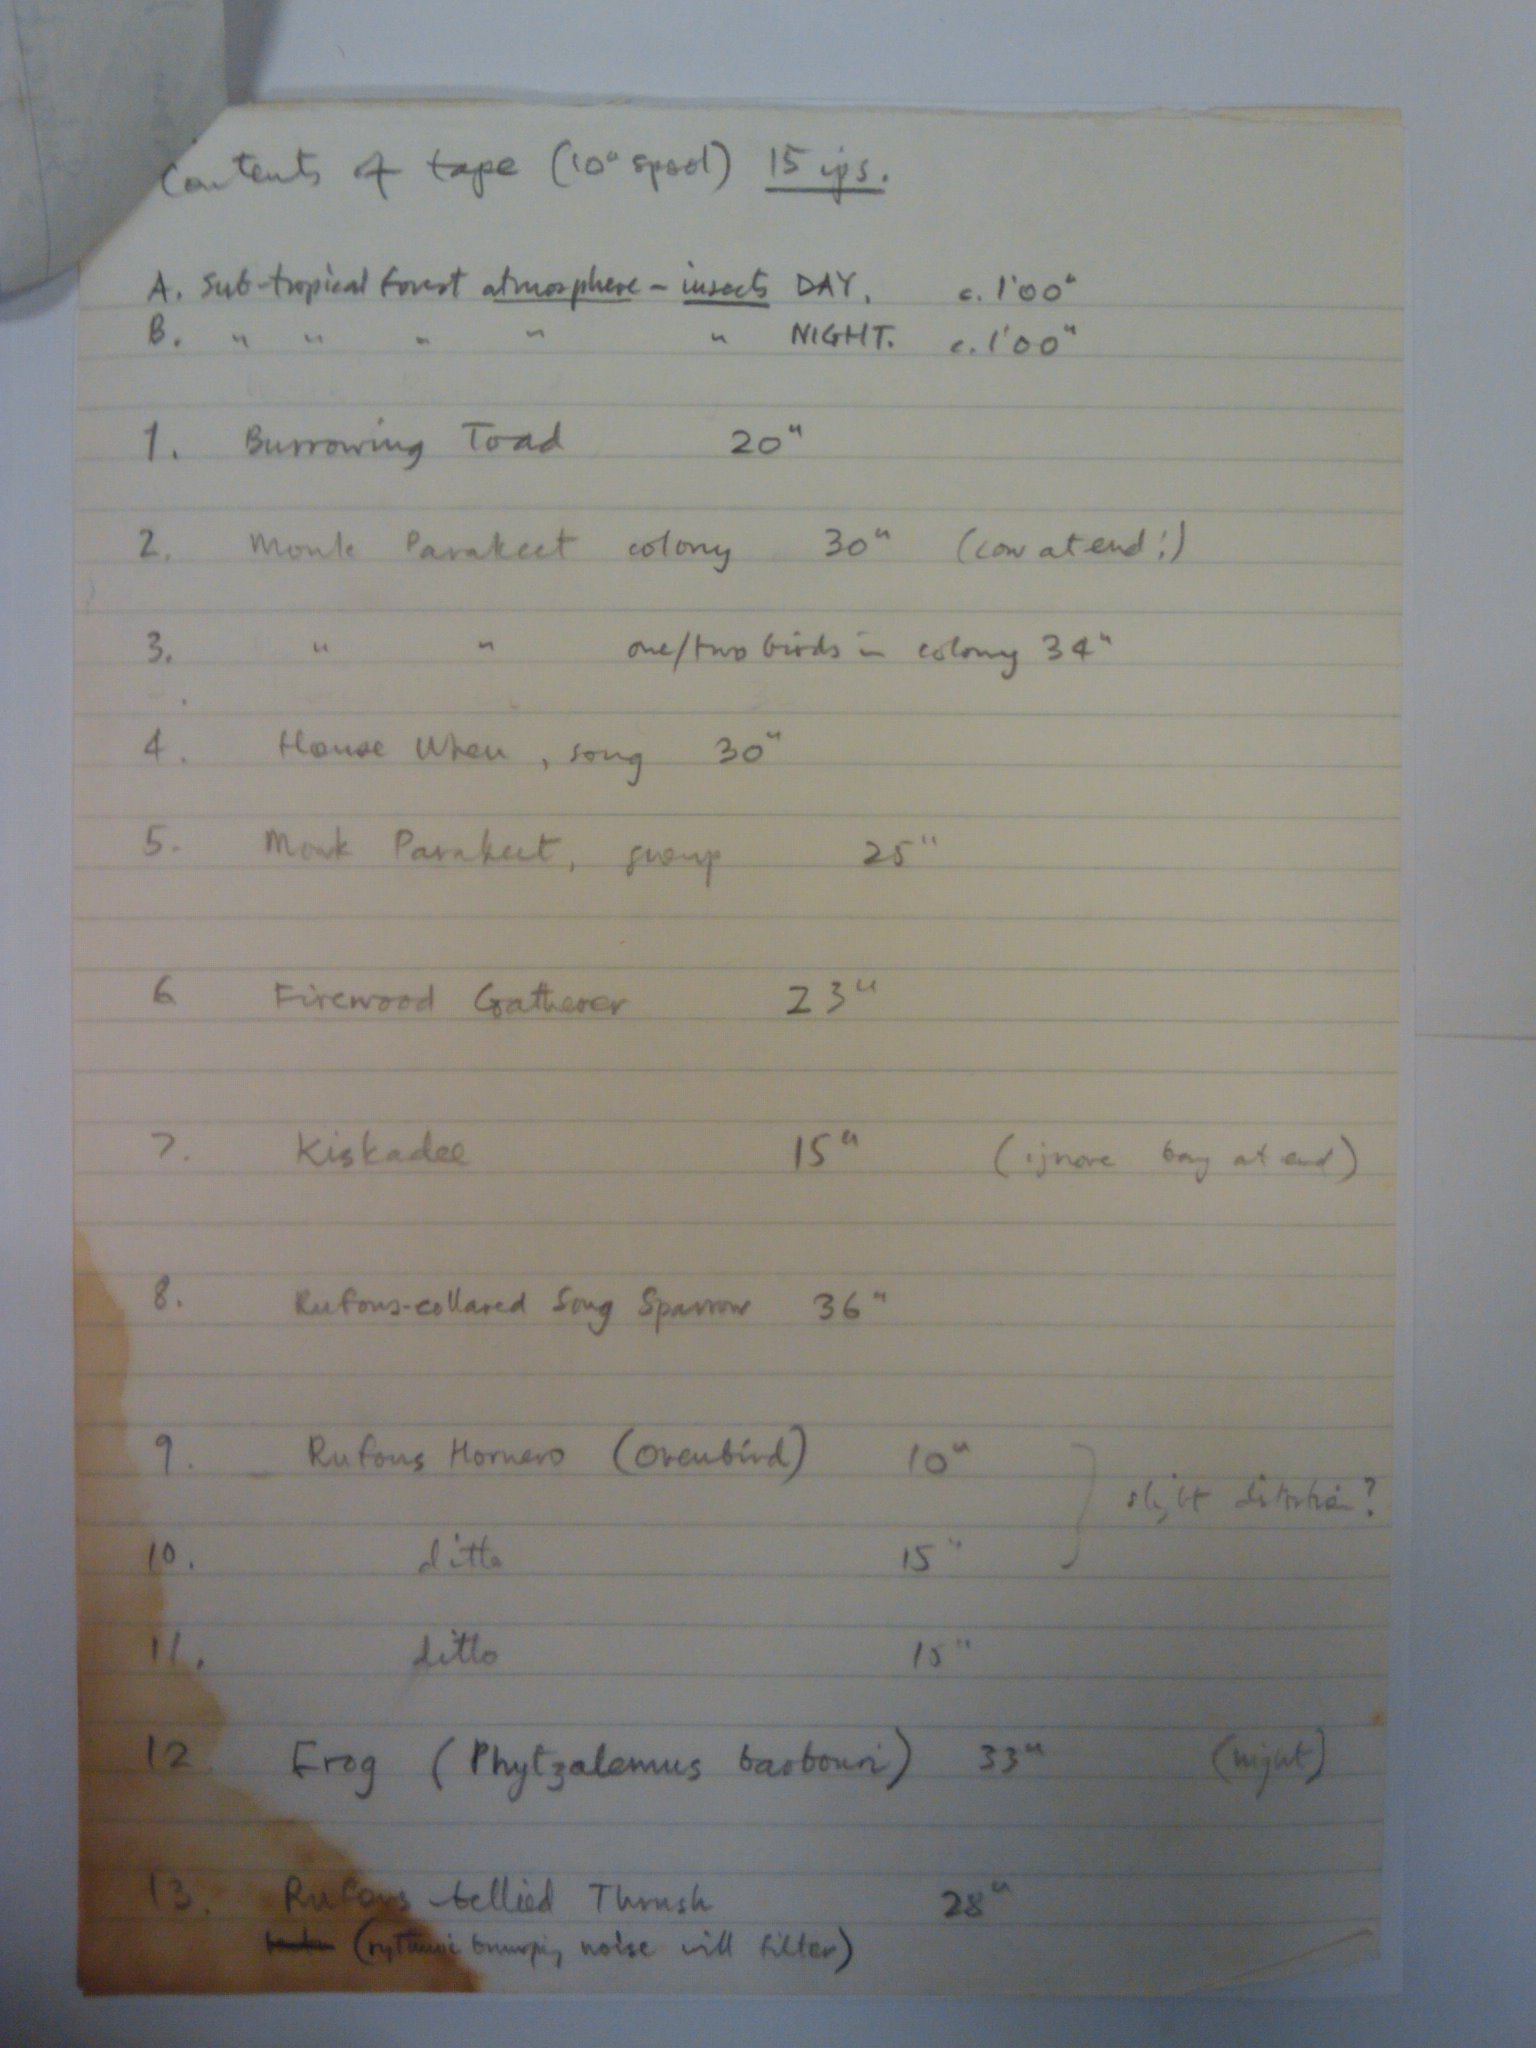 Contents of tape (10" spool) 15 ips.
A. Sub-tropical forest atmosphere - insects DAY. c. 1'00"
B. " " " " " NIGHT. c. 1'00"
1. Burrowing Toad 20"
2. Monk Parakeet colony 30" (cow at end!)
3. " " one/two birds in colony 34"
4. House Wren, song 30"
5. Monk Parakeet, group 25"
6 Firewood Gatherer 23"
7. Kiskadee 15" (ignore bang at end)
8. Rufous-collared Song Sparrow 36"
9. Rufous Hornero (Ovenbird) 10"
slight distortion?
10. ditto 15"
11. ditto 15"
12 Frog (Phytzalemus barbouri) 33" (night)
13. Rufous-bellied Thrush 28"
(rythmic bumping noise will filter)